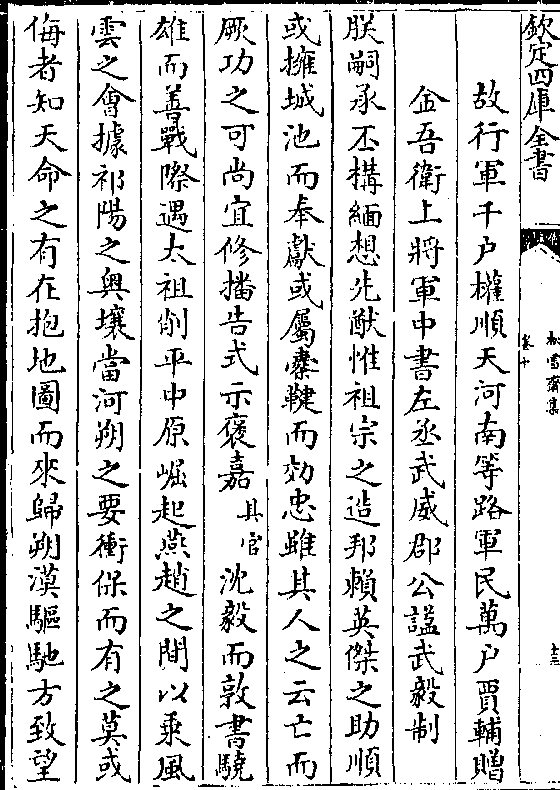 欽定四庫全書
松雪齋集
卷十
十三
故行軍千户權順天河南等路軍民萬户賈輔贈
金吾衛上將軍中書左丞武威郡公諡武毅制
朕嗣承丕構緬想先猷惟祖宗之造邦賴英傑之助順
或擁城池而奉獻或屬櫜鞬而効忠雖其人之云亡而
厥功之可尚宜修播告式示褒嘉具官沈毅而敦書驍
雄而善戰際遇太祖削平中原崛起燕趙之間以乘風
雲之會據祁陽之奥壤當河朔之要衝保而有之莫或
侮者知天命之有在抱地圖而來歸朔漠驅馳方致望